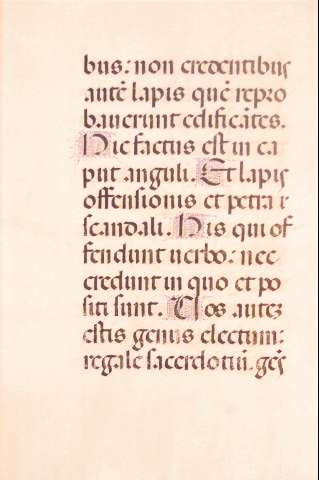 bus: non credentibus
autē lapis quē repro
bauerunt edificātes.
Hic factus est in ca
put anguli. Et lapis
offensionis et petra s
scandali. His qui of
fendunt uerbo: nec
credunt in quo et po
siti sunt. Uos autez
estis genus electum:
regale sacerdotiū. gēs